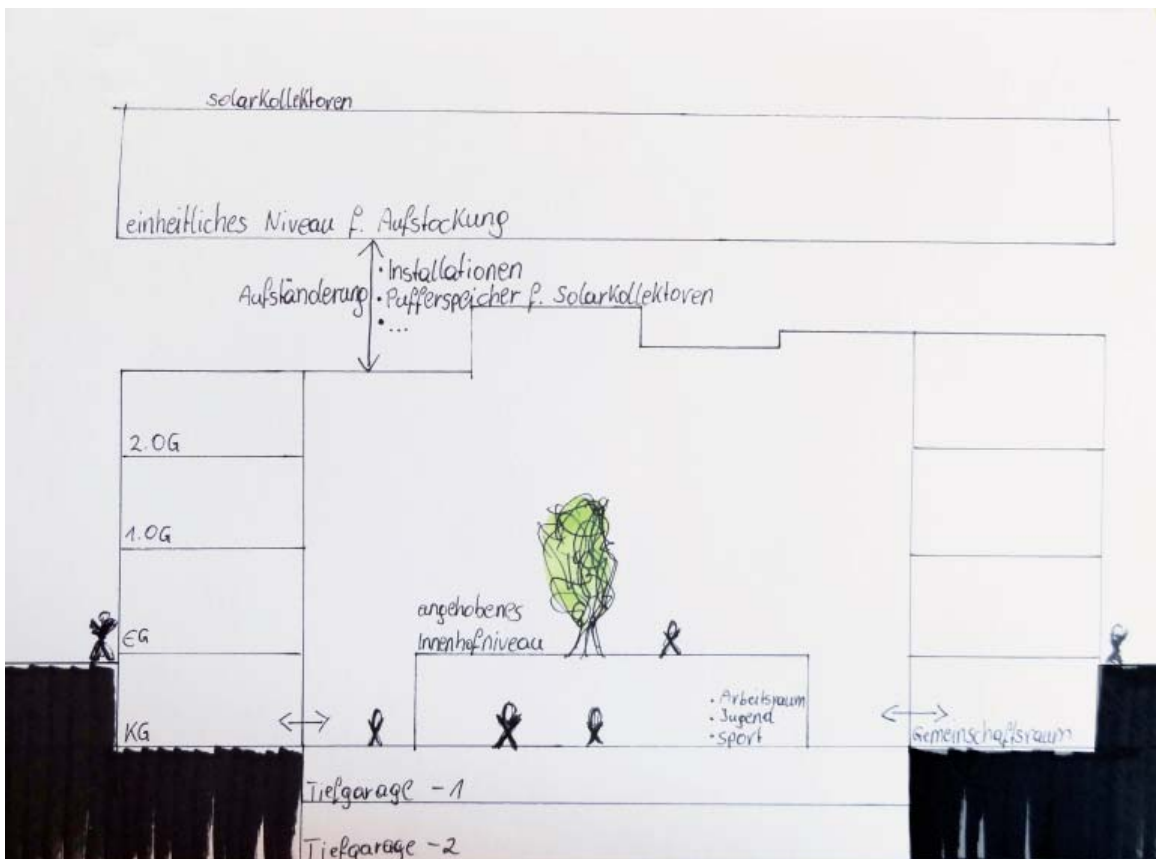 solarkollektoren
einheitliches Niveau f. Aufstockung
Aufständerung
• Installationen
• Pufferspeicher f. Solarkollektoren
• ...
2.OG
1.OG
EG
KG
angehobenes
Innenhofniveau
• Arbeitsraum
• Jugend
• sport
Gemeinschaftsraum
Tiefgarage -1
Tiefgarage -2